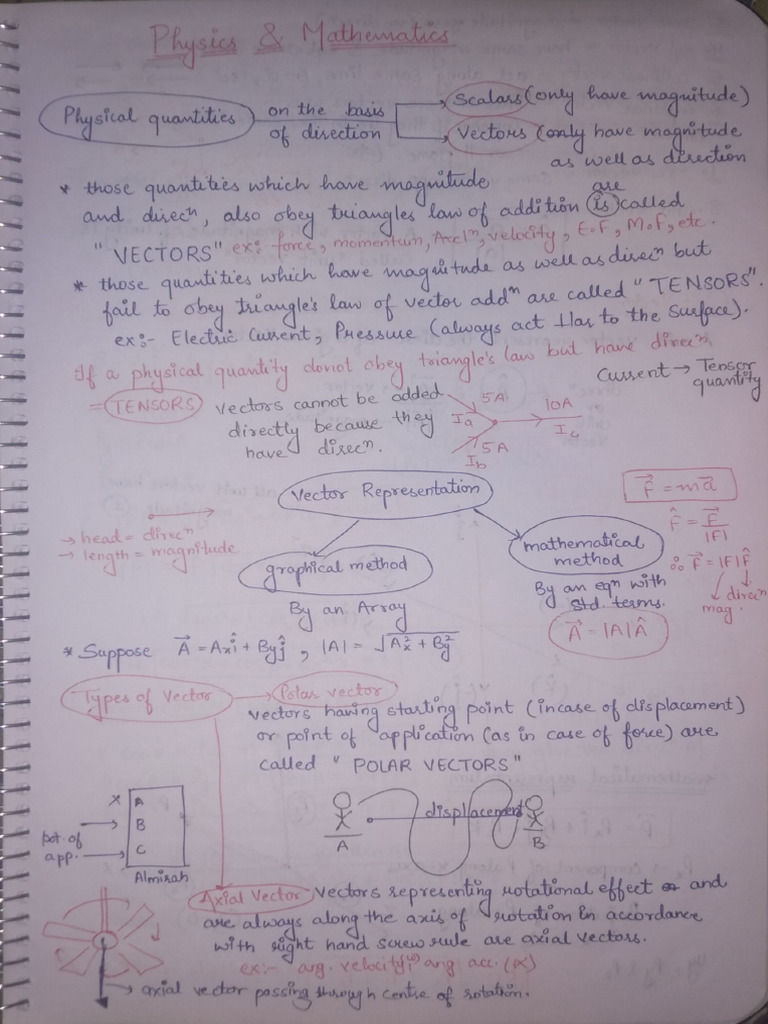 Physics & Mathematics
Physical quantities on the basis of direction
Scalars (only have magnitude)
Vectors (only have magnitude
as well as direction
* those quantities which have magnitude
and direcn, also obey triangles law of addition (is) are called
"VECTORS" ex: force, momentum, Accln, velocity, E.F, M.F, etc.
* those quantities which have magnitude as well as direcn but
fail to obey triangle's law of vector addn are called "TENSORS".
ex:- Electric Current, Pressure (always act ⊥lar to the surface).
If a physical quantity donot obey triangle's law but have direcn
= TENSORS
Vectors cannot be added
directly because they
have direcn.
5A
Ia
5A
Ib
10A
Ic
Current → Tensor
quantity
Vector Representation
→ head = direcn
→ length = magnitude
graphical method
By an Array
mathematical
method
By an eqn with
std. terms.
A⃗ = |A|Â
F⃗ = ma⃗
F̂ = F⃗/|F|
∴ F⃗ = |F|F̂
mag. direcn
* Suppose A⃗ = Axî + Byĵ, |A| = √(Ax² + By²)
Types of Vector → Polar vector
vectors having starting point (incase of displacement)
or point of application (as in case of force) are
called "POLAR VECTORS"
X A
B
C
pot. of
app.
Almirah
displacement
A
B
Axial Vector Vectors representing rotational effect and
are always along the axis of rotation in accordance
with right hand screw rule are axial vectors.
ex:- ang. velocity(ω) ang acc. (α)
→ axial vector passing through centre of rotation.